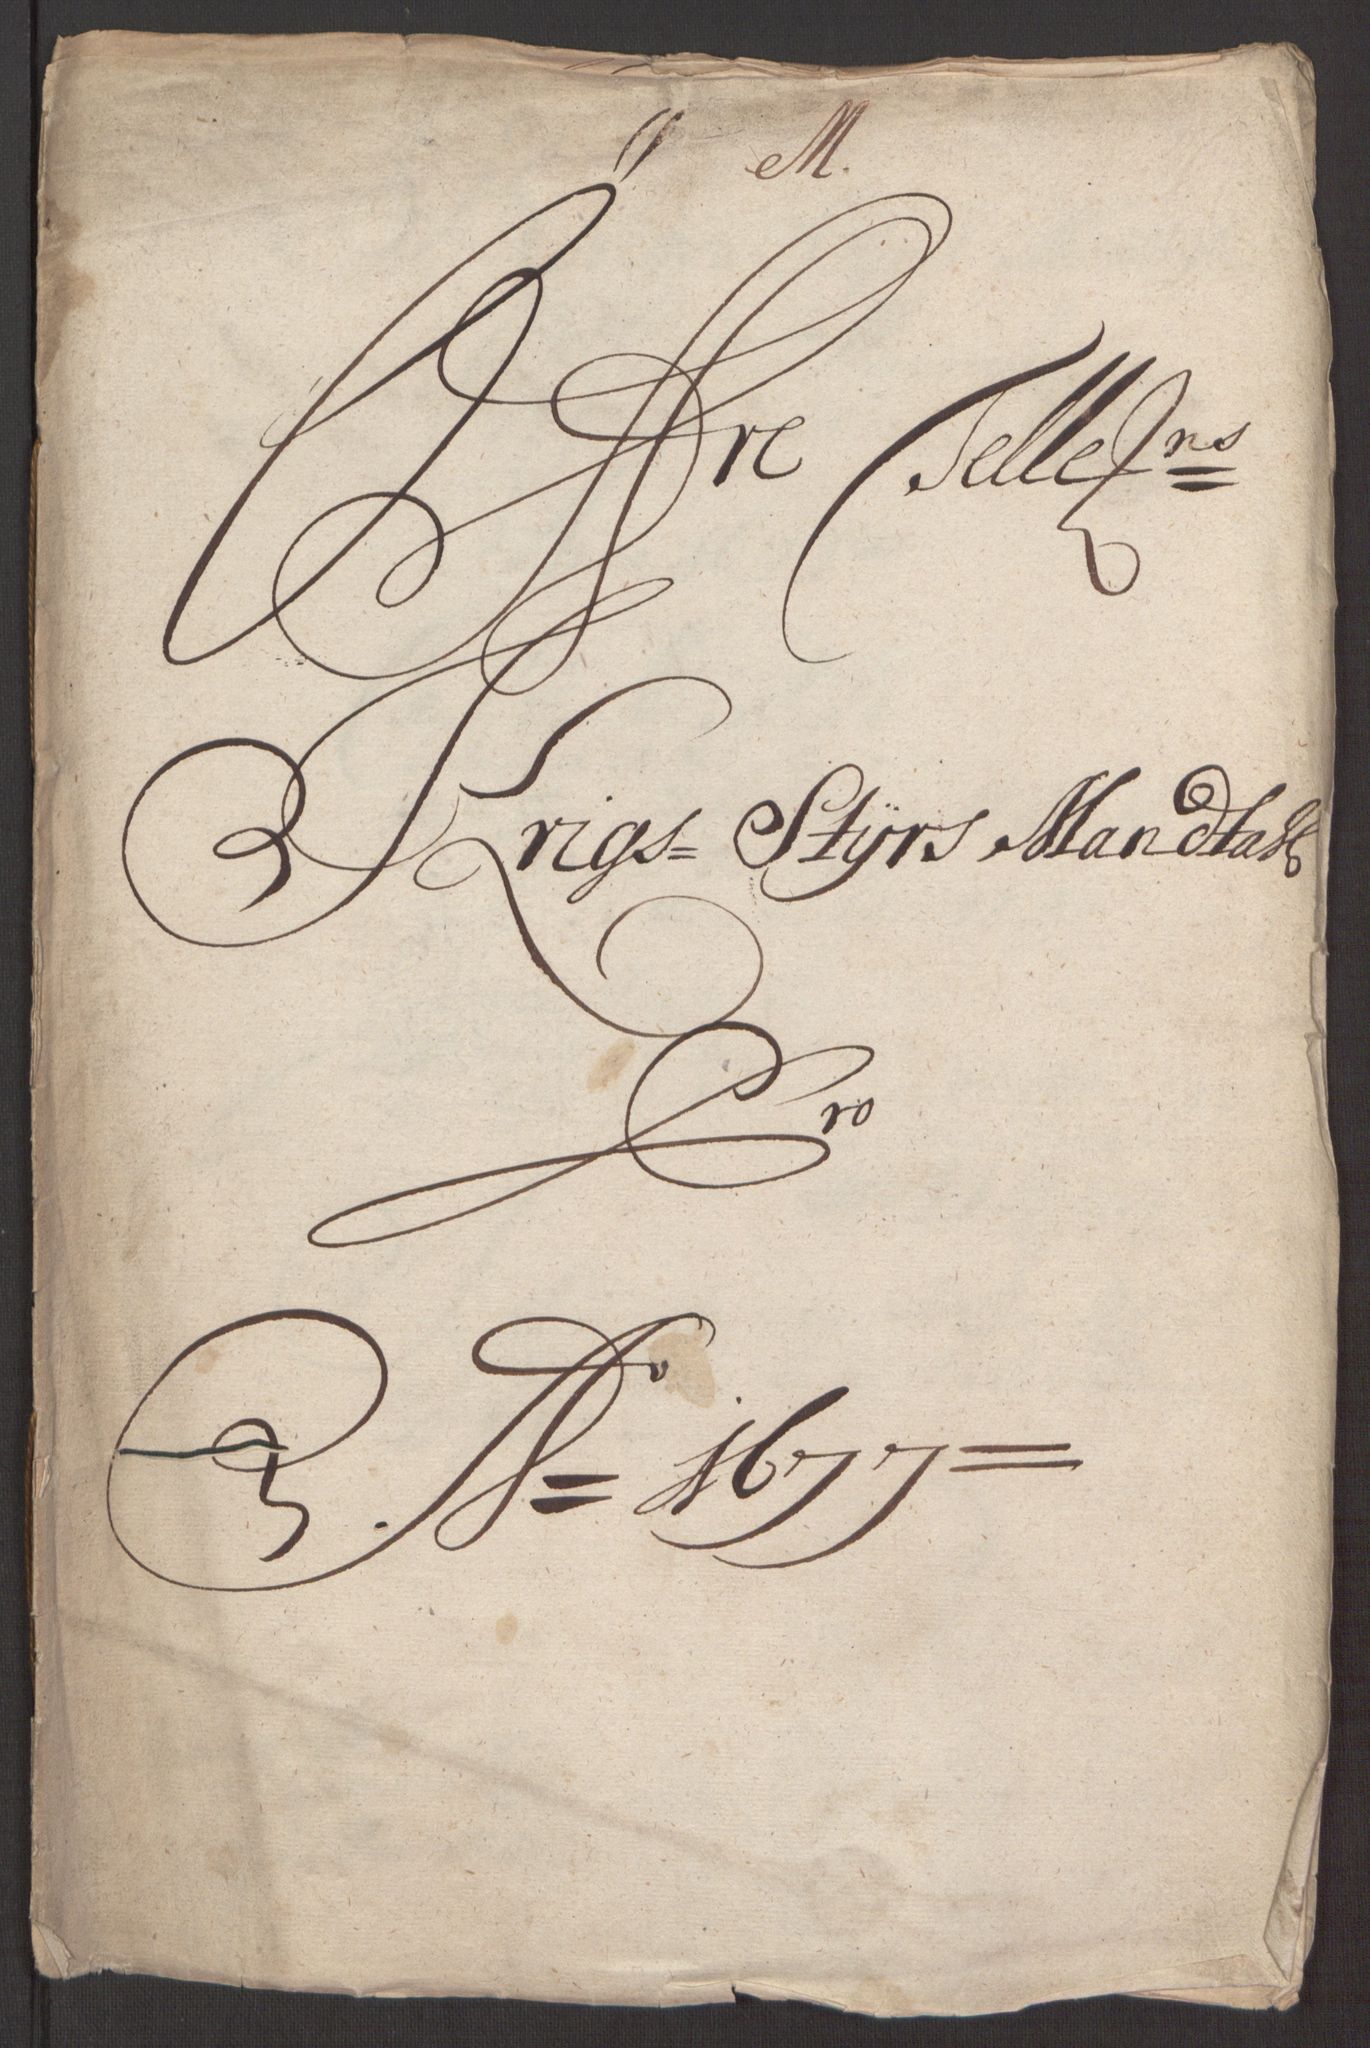 M.
Øfre Tellem:ns
Krigs= Styrs Mandtall
Pro
Ao= 1677=